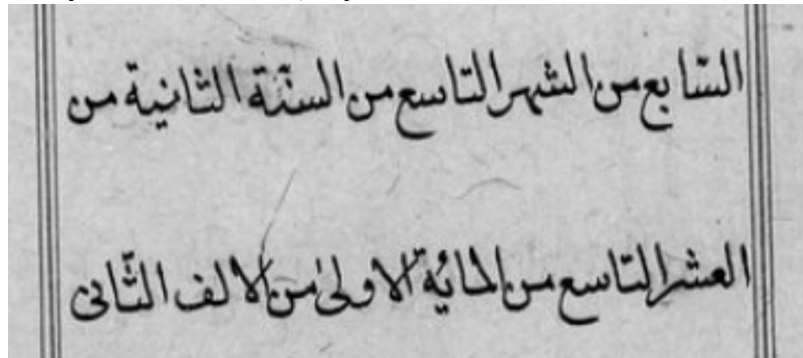 السّابع من الشهر التاسع من السنّة الثانية من
العشر التاسع من المائة الاولىٰ من الالف الثّانى